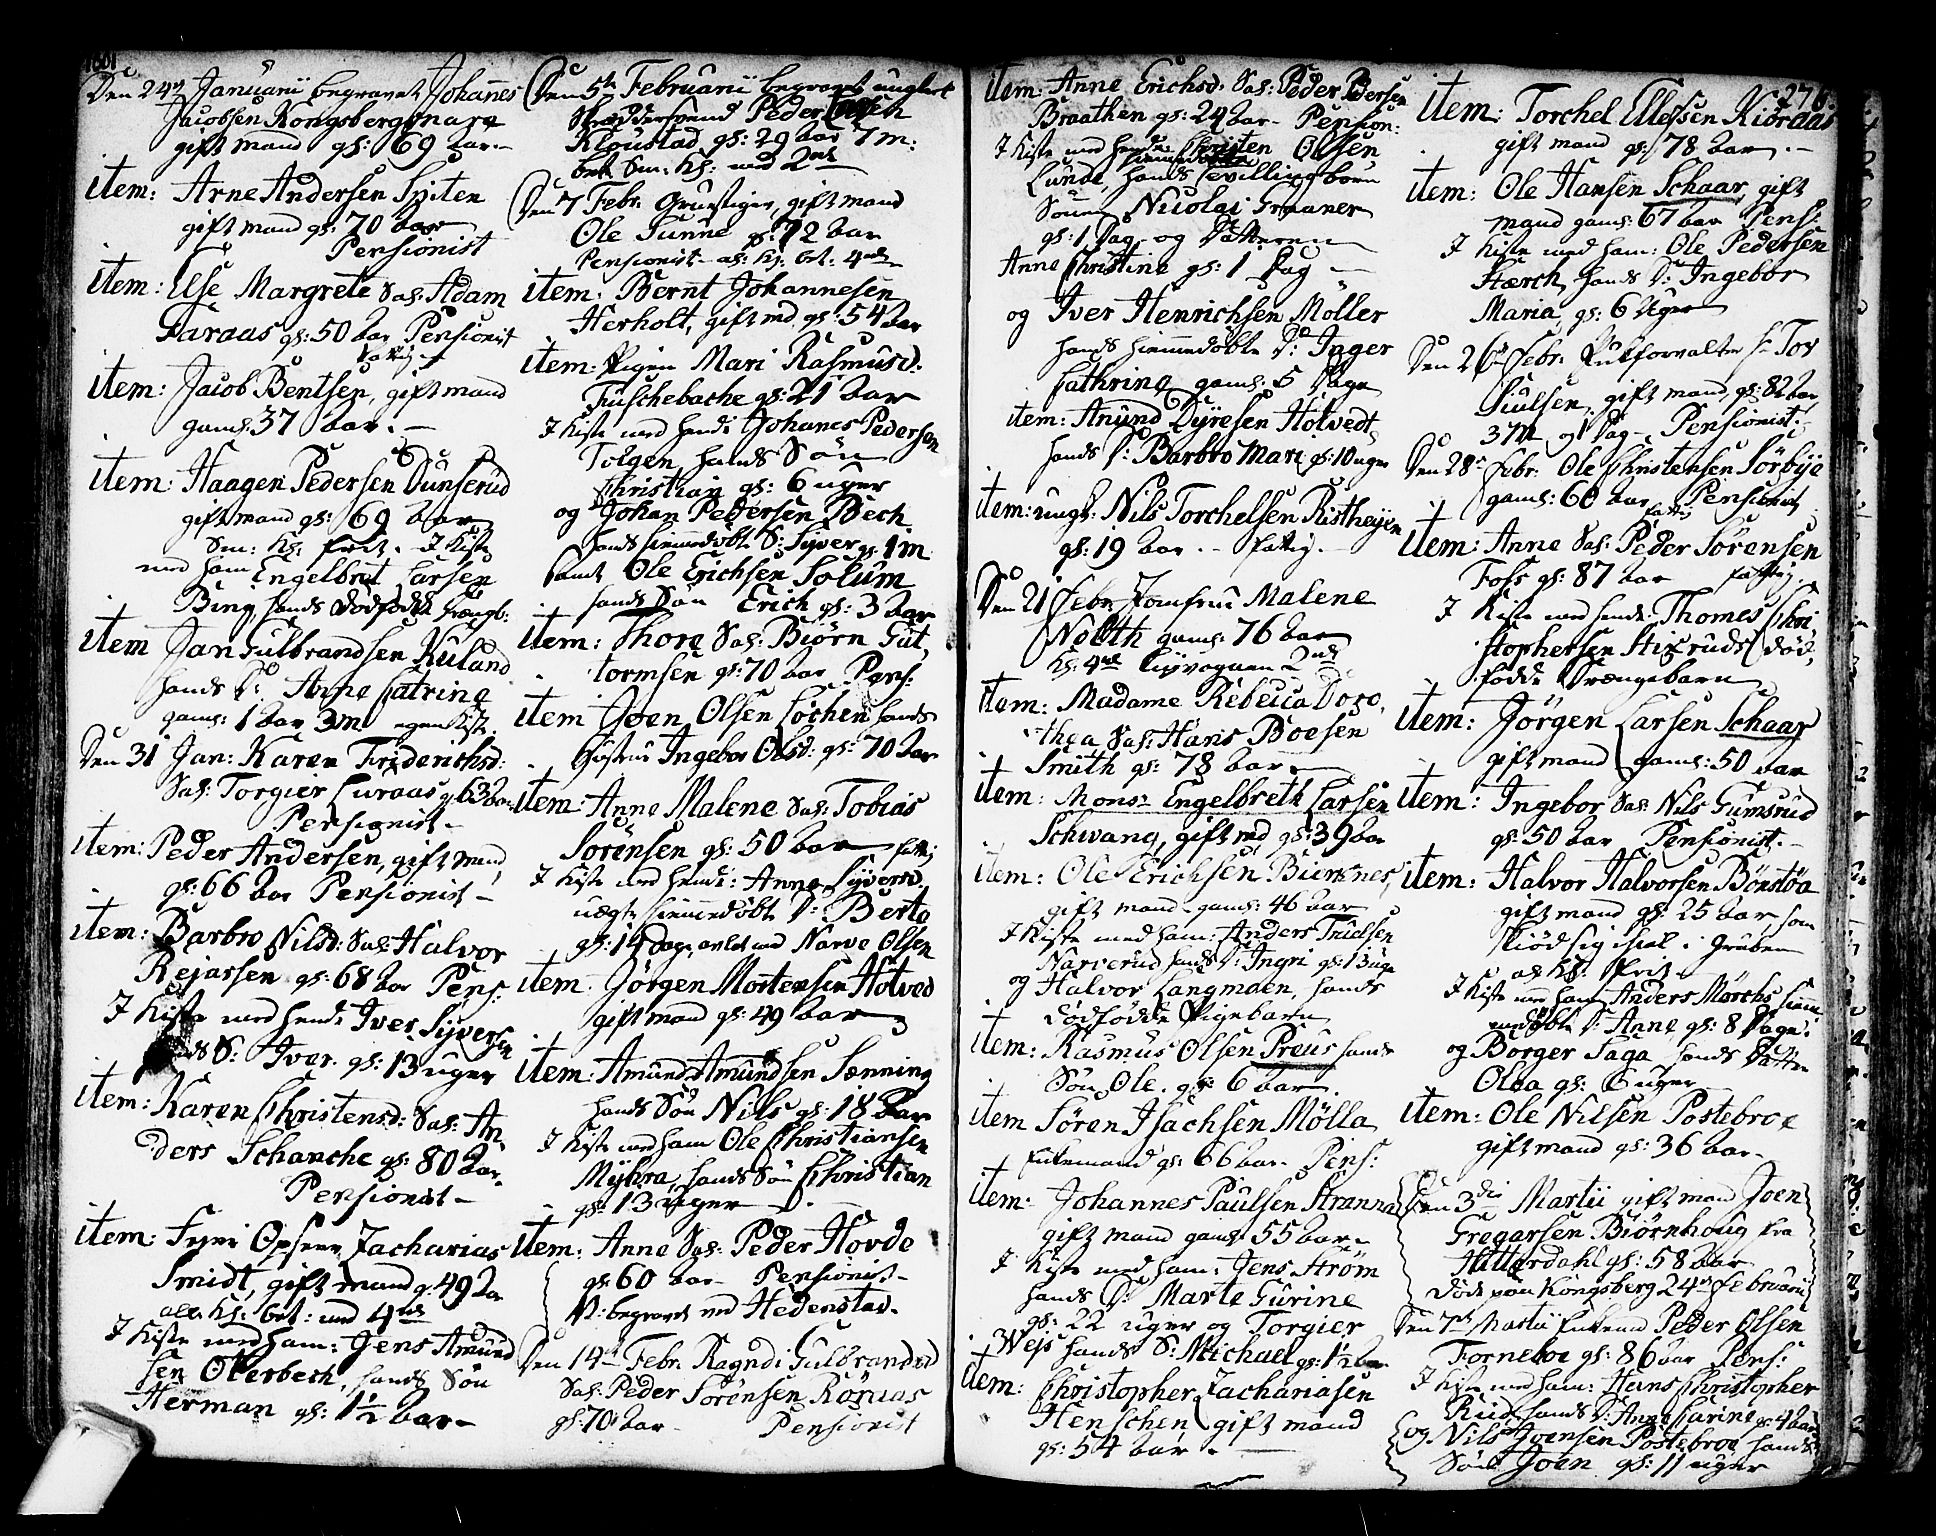 1801
Den 24de Januarii begravet Johanes
Jacobsen Kongsberg
gift mand gl: 69 Aar.
item: Arne Andersen Spiten
gift mand gl: 70 Aar
Pensionist
item: Else Margrete Sal: Adam
Faraas gl: 50 Aar Pensionist
item: Jacob Bentsen, gift mand
gaml: 37 Aar.
item: Haagen Pedersen Dunserud
gift mand gl: 69 Aar
Sm: Kl: frit. I Kiste
med ham Engelbrit Larsen
Bing hands dødfødde
item Jan Gulbrandsen Ruland
hands D: Anne Catrine
gaml: 1 Aar 3 m egen Kiste
Den 31 Jan: Karen Friderichsd:
Sal: Torgier Luraas gl 63 Aar
Pensionist
item: Peder Andersen, gift mand,
gl: 66 Aar Pensionist
item: Barbro Nilsd: Sal: Halvor
Rejassen gl: 68 Aar Pens:
I Kiste med hende Iver Syversen
S: Iver. gl: 13 uger
item: Karen Christensd: Sal: An,
ders Schanche gl: 80 Aar
Pensionist
item: Zacharias
Smidt, gift mand gl 49 Aar
alle Kl: bet: med 4
I Kiste med ham: Jens Amund
sen Oterbech, hands Søn
Herman gl: 1½ Aar
Den 5te Februarii begravet ungkarl
Skreddersvend Peder Olsen
Kloustad gl: 29 Aar 7 m:
bet Sm: Kl: med 2
Den 7 Febr. Grubstiger, gift mand
Ole Sunne gl: 72 Aar
Pensionist al: Kl: bet: 4
item: Bernt Johannesen
Herholt, gift md gl: 54 Aar
item: Pigen Mari Rasmusd:
Fuschebache gl: 21 Aar
I Kiste med hende Johanes Pedersen
Tolgen, hands Søn
Christian gl: 6 uger
og Johan Pedersen Bech
hands hiemmedøbte S: Syver gl: 1 m
samt Ole Erichsen Solum
hands Søn Erich gl: 3 Aar
item: Thore Sal: Biørn Gut,
tormsen gl: 70 Aar Pens:
item Joen Olsen Løchen hands
Hustrue Ingebor Olsd: gl: 70 Aar
item: Anne Malene Sal: Tobias
Sørensen gl: 50 Aar fattig
I Kiste med hende: Anne Syversd.
uægte hiemmedøbte D: Berta
gl: 14 dage, avlet med Narve Olsen
item. Jørgen Mortensen Hotved
gift mand gl: 49 Aar
item: Amund Amundsen Sønning
hands Søn Nils gl: 18 Aar
I Kiste med ham Ole Christiansen
Myhra, hands Søn Christian
gl: 13 uger
item: Anne Sal: Peder Hovde
gl: 60 Aar Pensionist
begravet ved Hedenstad.
Den 14de Febr. Ragndi Gulbrandsd
Sal: Peder Sørensen Roraas
gl: 70 Aar Pensionist
item: Anne Erichsd. Sal: Peder Pedersen
Braathen gl: 24 Aar. Pension:
I Kiste med hende Christen Olsen
Lunde, hands hiemmedøbte tvillingbørn
Sønn Nicolai Graaner
gl: 1 Dag og Datteren
Anne Christine gl: 1 Dag
og Iver Henrichsen Møller
hands hiemmedøbte D: Inger
Cathrine gaml: 5 Dage
item: Anund Dyresen Hotvedt
hands D: Barbro Mari gl: 10 uger
item: ungk: Nils Torchelsen Ristheyen
gl: 19 Aar. fattig.
Den 21 Febr Jomfrue Malene
Nolth gaml: 76 Aar
Kl: 4 Liigvognen 2
item: Madame Rebecca Doro,
thea Sal: Hans Boesen
Smith gl: 78 Aar
item: Monsr Engelbreth Larsen
Schwang, gift md gl: 39 Aar
item: Ole Erichsen Biersnes,
gift mand gaml: 46 Aar
I Kiste med ham: Anders Truelsen
Narverud hands D: Ingri gl: 13 uge
og Halvor Langmoen, hands
dødfødde Pigebarn
item: Rasmus Olsen Preus hands
Søn Ole. gl: 6 Aar
item Søren Isachsen Mølla
Enkemand gl: 66 Aar. Pens:
item: Johannes Paulsen Stranna
gift mand gaml: 55 Aar.
I Kiste med ham: Jens Strøm
hands D: Marte Gurine
gl: 22 uger og Torgier
Wejs hands S: Michael gl: 1½ Aar
item: Christopher Zachariasen
Henschen gift mand
gl: 54 Aar.
276
item: Torchel Ellefsen Kioraas
gift mand gl: 78 Aar.
item: Ole Hansen Schaar, gift
mand gaml: 67 Aar Pens:
I Kiste med ham: Ole Pedersen
Stærch hands D: Ingebor
Maria, gl: 6 Uger
Den 26de Febr. Pukforvalter Hr Tov
Siulsen, gift mand, gl: 82 Aar,
3 M og 1 Dag Pensionist.
Den 28de Febr: Ole Christensen Sørbye
gaml: 60 Aar Pensionist
item: Anne Sal: Peder Sørensen
Foss gl: 87 Aar fattig.
I Kiste med hende: Thomes Chri
stophersen Stixruds død,
fødde Drængebarn
item: Jørgen Larsen Schaar
gift mand gaml: 50 Aar
item: Ingebor Sal: Nils Gumsrud
gl: 50 Aar Pensionist.
item: Halvor Halvorsen Bønstøa
gift mand gl: 25 Aar som
skiød sig ihiel i Gruben
al Kl: frit
I Kiste med ham Anders Mørchs hiem
medøbte D: Anne gl: 8 Dage
og Borger Saga hands Datter
Olea gl: 6 uger
item: Ole Nilsen Postebroe
gift mand gl: 36 Aar
Den 3die Martii gift mand Joen
Gregarsen Biørnhoug fra
Hitterdahl gl: 58 Aar
døde paa Kongsberg 24 Februarii
Den 7de Martii Enkemd Peder Olsen
Forneboe gl: 86 Aar Pens:
I Kiste med ham: Hans Christopher
Ruds hands D: Anne Carine gl: 4 Aar
og Nils Joensen Postebroe hands
Søn Joen gl: 11 uger